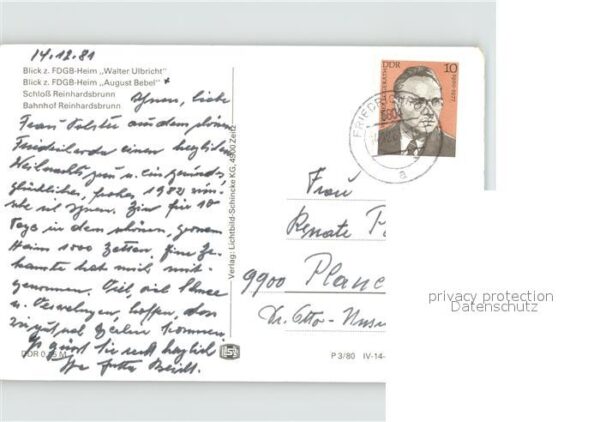 14.12.81
Blick z. FDGB-Heim „Walter Ulbricht"
Blick z. FDGB-Heim „August Bebel"
Schloß Reinhardsbrunn
Bahnhof Reinhardsbrunn
Ihnen, liebe
Frau aus dem schönen
Friedrichroda einen herzlichen
Weihnachtsgruß u. ein gesundes,
glückliches, frohes 1982 wün-
sche ich Ihnen. Sind für 10
Tage in dem schönen, grossen
Heim 1000 Betten. Eine Be-
kannte hat mich mit-
genommen. Viel Schnee
u. hoffen, dass
wir gut nach kommen.
Es grüsst Sie recht herzlich
Ihre Jutta
DDR 0, M
Verlag: Lichtbild-Schincke KG, 4900 Zeitz
P 3/80 IV-14-
DDR 10
FRIEDR
580
a
Frau
Renate
9900 Plaue
Dr. Otto-Nusc
privacy protection
Datenschutz